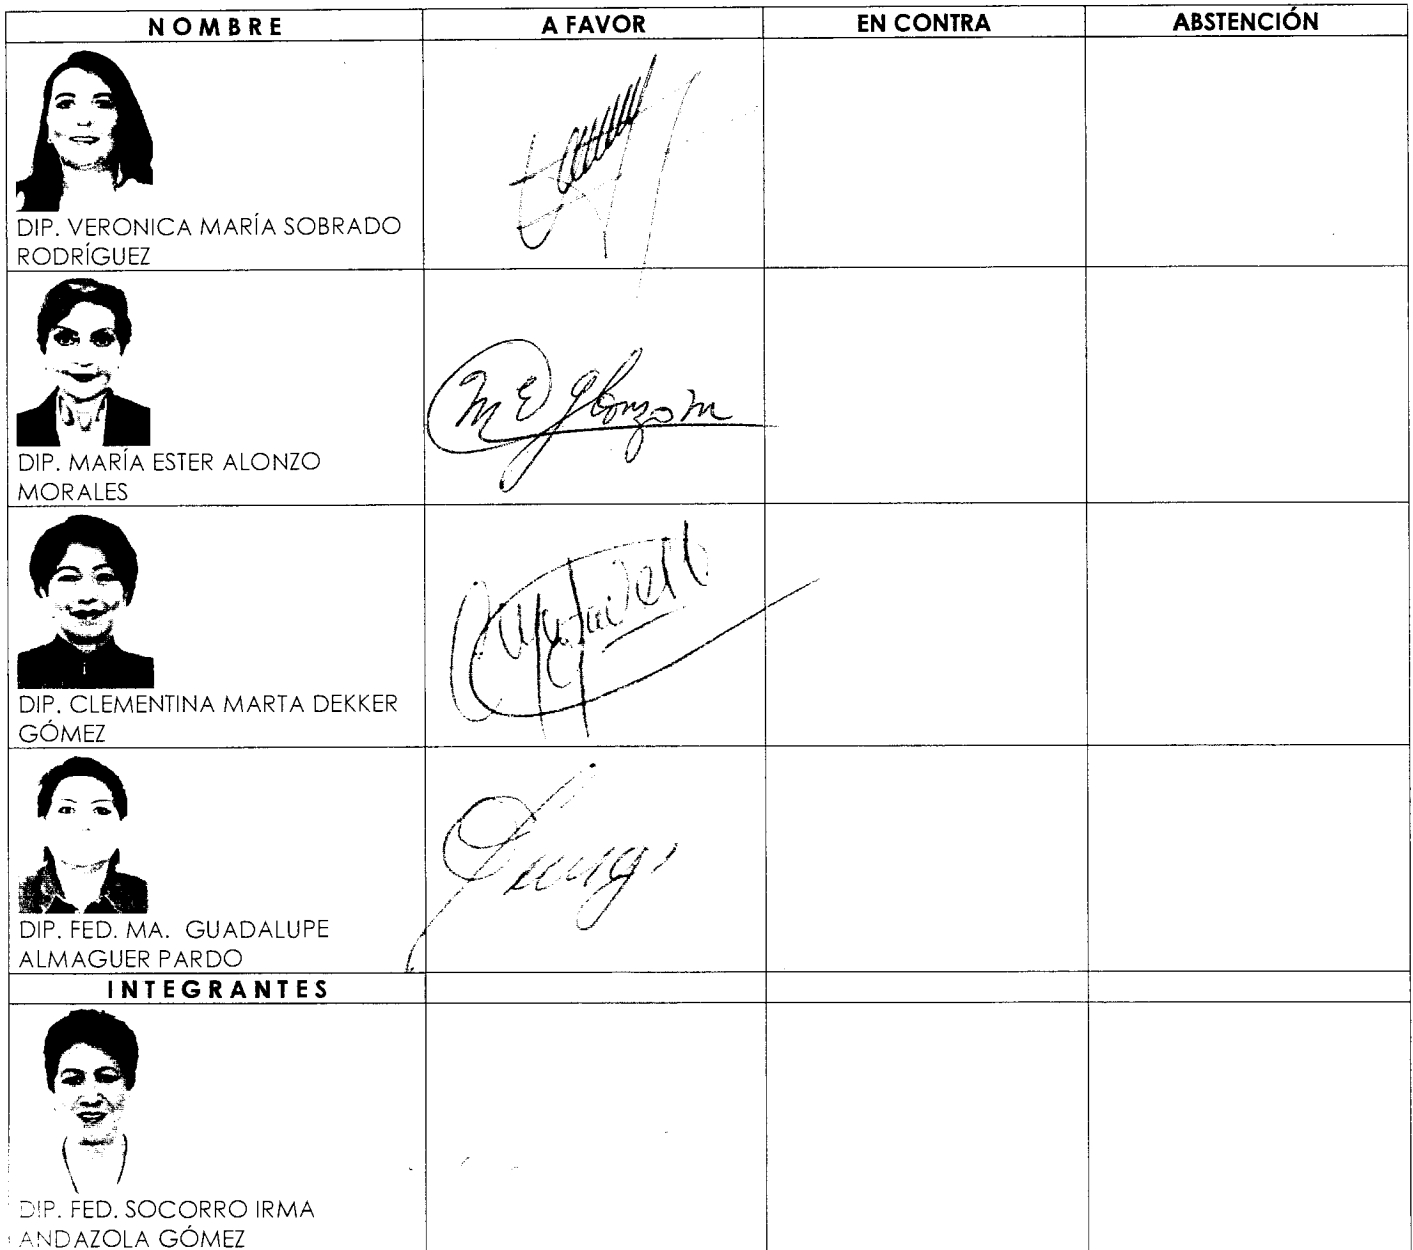 NOMBRE A FAVOR EN CONTRA ABSTENCIÓN
DIP. VERONICA MARÍA SOBRADO
RODRÍGUEZ
M E Alonzo M
DIP. MARÍA ESTER ALONZO
MORALES
DIP. CLEMENTINA MARTA DEKKER
GÓMEZ
DIP. FED. MA. GUADALUPE
ALMAGUER PARDO
INTEGRANTES
DIP. FED. SOCORRO IRMA
ANDAZOLA GÓMEZ